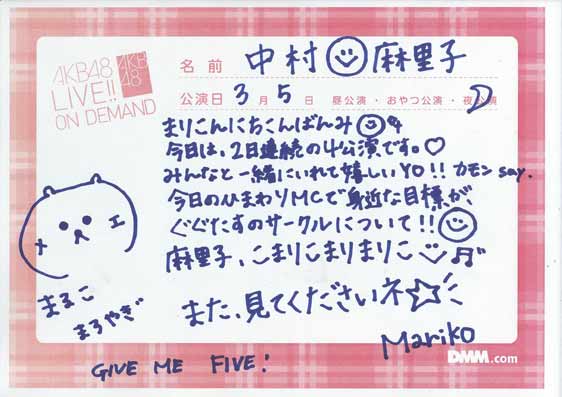 AKB48
LIVE!!
ON DEMAND
AKB
48
名前 中村 麻里子
公演日 3月5日 昼公演・おやつ公演・夜公演
まりこんにちこんばんみ
今日は、2日連続の4公演です。♡
みんなと一緒にいれて嬉しいYO!! カモン say.
今日のひまわりMCで身近な目標が、
ぐぐたすのサークルについて!!
麻里子、こまりこまりまりこ
また、見てくださいネ☆
Mariko
まるこ
まろやぎ
GIVE ME FIVE!
DMM.com